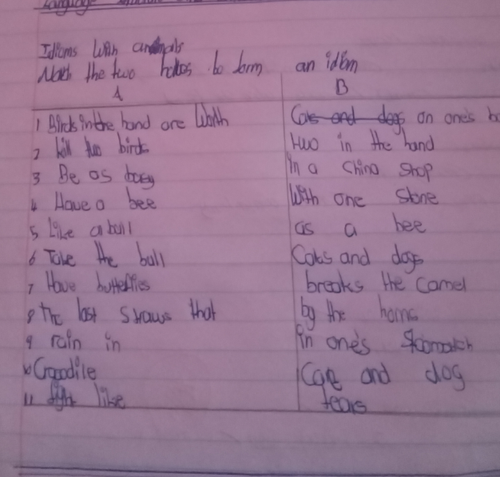 Language
Idioms With animals
Match the two halves to form an idiom
A B
1 Birds in the hand are Worth Cats and dogs on one's
2 kill two birds two in the hand
3 Be as busy in a China shop
4 Have a bee With one stone
5 Like a bull as a bee
6 Take the bull Cats and dogs
7 Have butterflies breaks the Camel
8 The last straws that by the horns
9 rain in in one's Stomatch
10 Crocodile Cat and dog
11 fight like tears